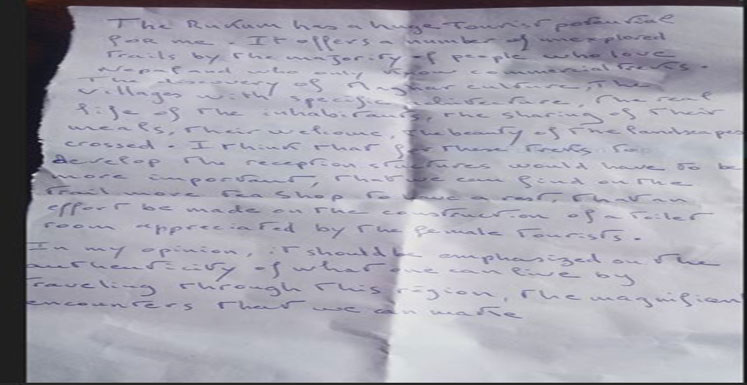 The Rukum has a huge Tourist potential
for me. It offers a number of unexplored
trails by the majority of people who love
Nepal and who only know commercial treks.
The discovery of Maghar culture, the
villages with specific architecture, the real
life of the inhabitants, the sharing of their
meals, their welcome, the beauty of the landscapes
crossed. I think that for these treks to
develop the reception structures would have to be
more important, that we can find on the
trail more tea shop to have a rest, that an
effort be made on the construction of a toilet
room appreciated by the female tourists.
In my opinion, it should be emphasized on the
authenticity of what one can live by
traveling through this region, the magnificent
encounters that we can make